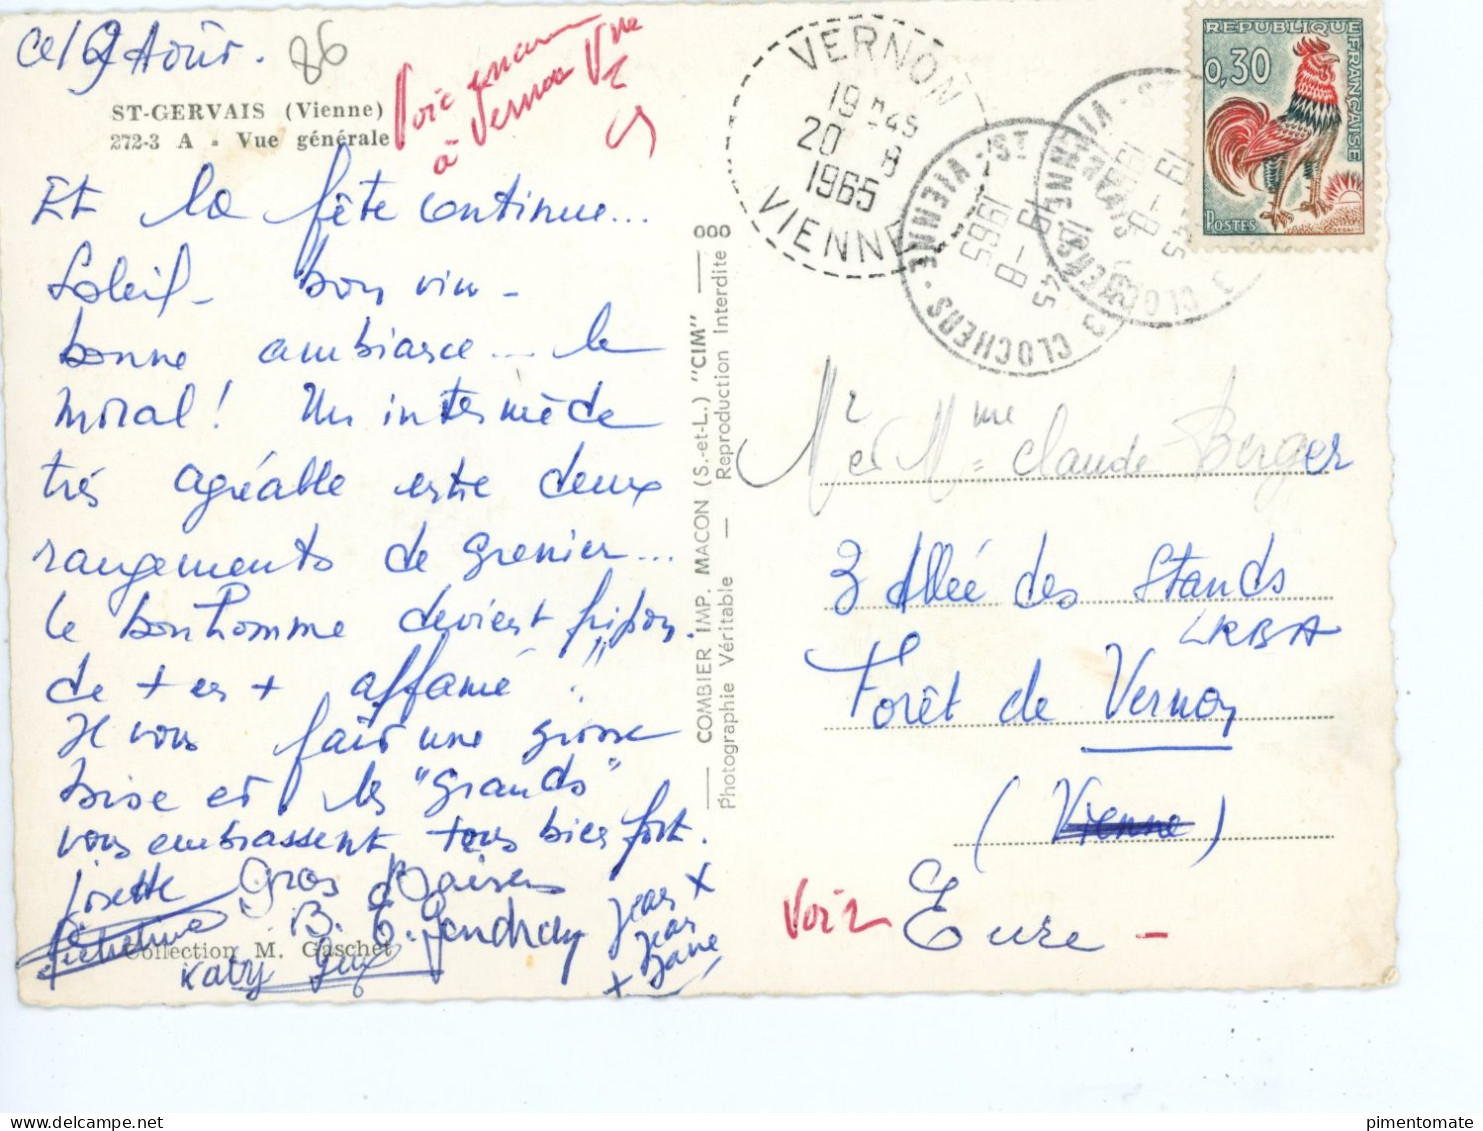 Ce 19 Août.
86
ST-GERVAIS (Vienne)
272-3 A - Vue générale
à Vernon Vne
Et la fête continue...
Soleil - bon vin -
bonne ambiance... le
moral ! Un intermède
très agréable entre deux
rangements de grenier...
le bonhomme devient fripon.
de + en + affamé
Il vous fait une grosse
bise et les "grands"
vous embrassent tous bien fort.
Lisette Gros Baisers
B.
Katy
Jean
Collection M. Gaschet
COMBIER IMP. MACON (S.-et-L.) "CIM"
Photographie Véritable — Reproduction Interdite
000
VERNON
19 H45
20 - 8
1965
VIENNE
ST GERVAIS LES 3 CLOCHERS - VIENNE
19 - 8
1965
REPUBLIQUE FRANÇAISE
0,30
POSTES
Mr et Mme Claude Berger
3 Allée des Stands
LRBA
Forêt de Vernon
(Vienne)
Voir Eure -
pimentomate